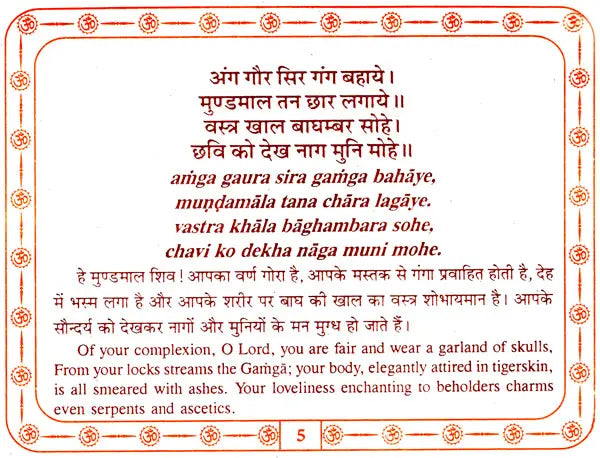 अंग गौर सिर गंग बहाये।
मुण्डमाल तन छार लगाये॥
वस्त्र खाल बाघम्बर सोहे।
छवि को देख नाग मुनि मोहे॥
aṁga gaura sira gaṁga bahāye,
muṇḍamāla tana chāra lagāye.
vastra khāla bāghambara sohe,
chavi ko dekha nāga muni mohe.
हे मुण्डमाल शिव! आपका वर्ण गोरा है, आपके मस्तक से गंगा प्रवाहित होती है, देह
में भस्म लगा है और आपके शरीर पर बाघ की खाल का वस्त्र शोभायमान है। आपके
सौन्दर्य को देखकर नागों और मुनियों के मन मुग्ध हो जाते हैं।
Of your complexion, O Lord, you are fair and wear a garland of skulls,
From your locks streams the Gaṁgā; your body, elegantly attired in tigerskin,
is all smeared with ashes. Your loveliness enchanting to beholders charms
even serpents and ascetics.
5